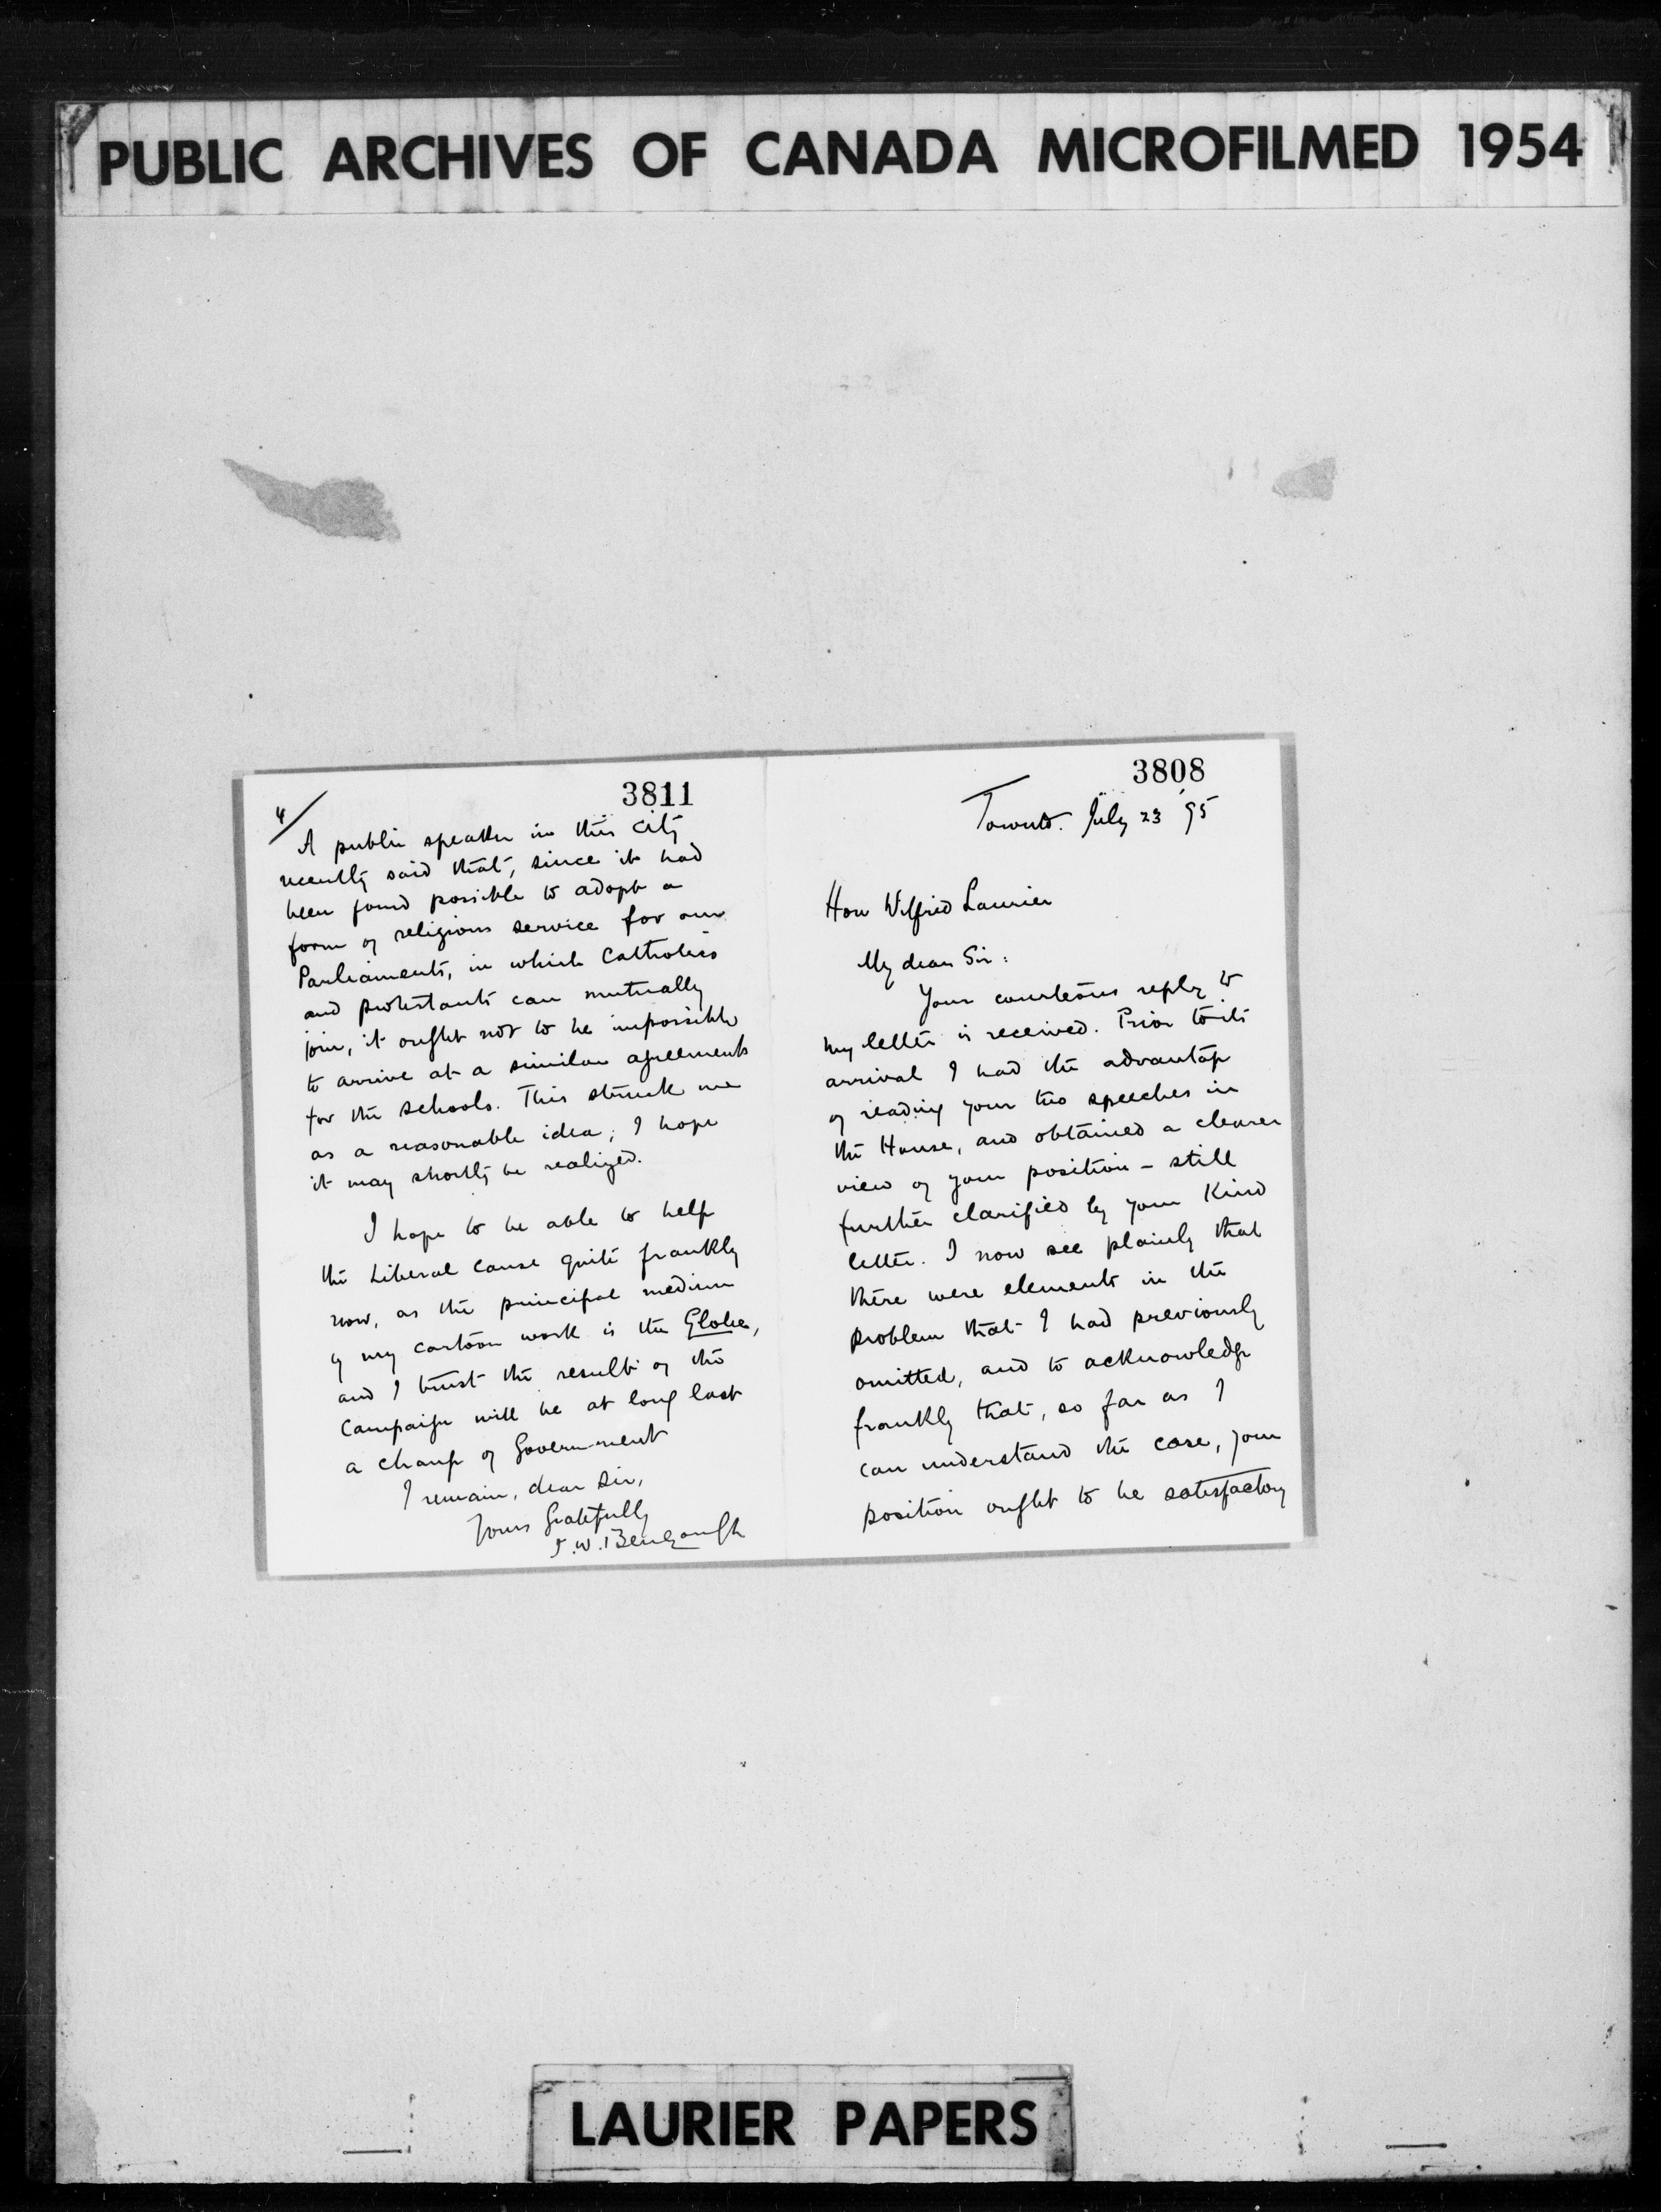 PUBLIC ARCHIVES OF CANADA MICROFILMED 1954
3811
4/
A public speaker in this city
recently said that, since it had
been found possible to adopt a
form of religious service for our
Parliaments, in which Catholics
and protestants can mutually
join, it ought not to be impossible
to arrive at a similar agreement
for the schools. This struck me
as a reasonable idea; I hope
it may shortly be realized.
I hope to be able to help
the Liberal cause quite frankly
now, as the principal medium
of my cartoon work is the Globe,
and I trust the result of the
campaign will be at long last
a change of Government
I remain, dear Sir,
Yours Gratefully
J.W. Bengough
3808
Toronto. July 23 '95
Hon Wilfrid Laurier
My dear Sir:
Your courteous reply to
my letter is received. Prior to its
arrival I had the advantage
of reading your two speeches in
the House, and obtained a clearer
view of your position - still
further clarified by your kind
letter. I now see plainly that
there were elements in the
problem that I had previously
omitted, and to acknowledge
frankly that, so far as I
can understand the case, your
position ought to be satisfactory
LAURIER PAPERS